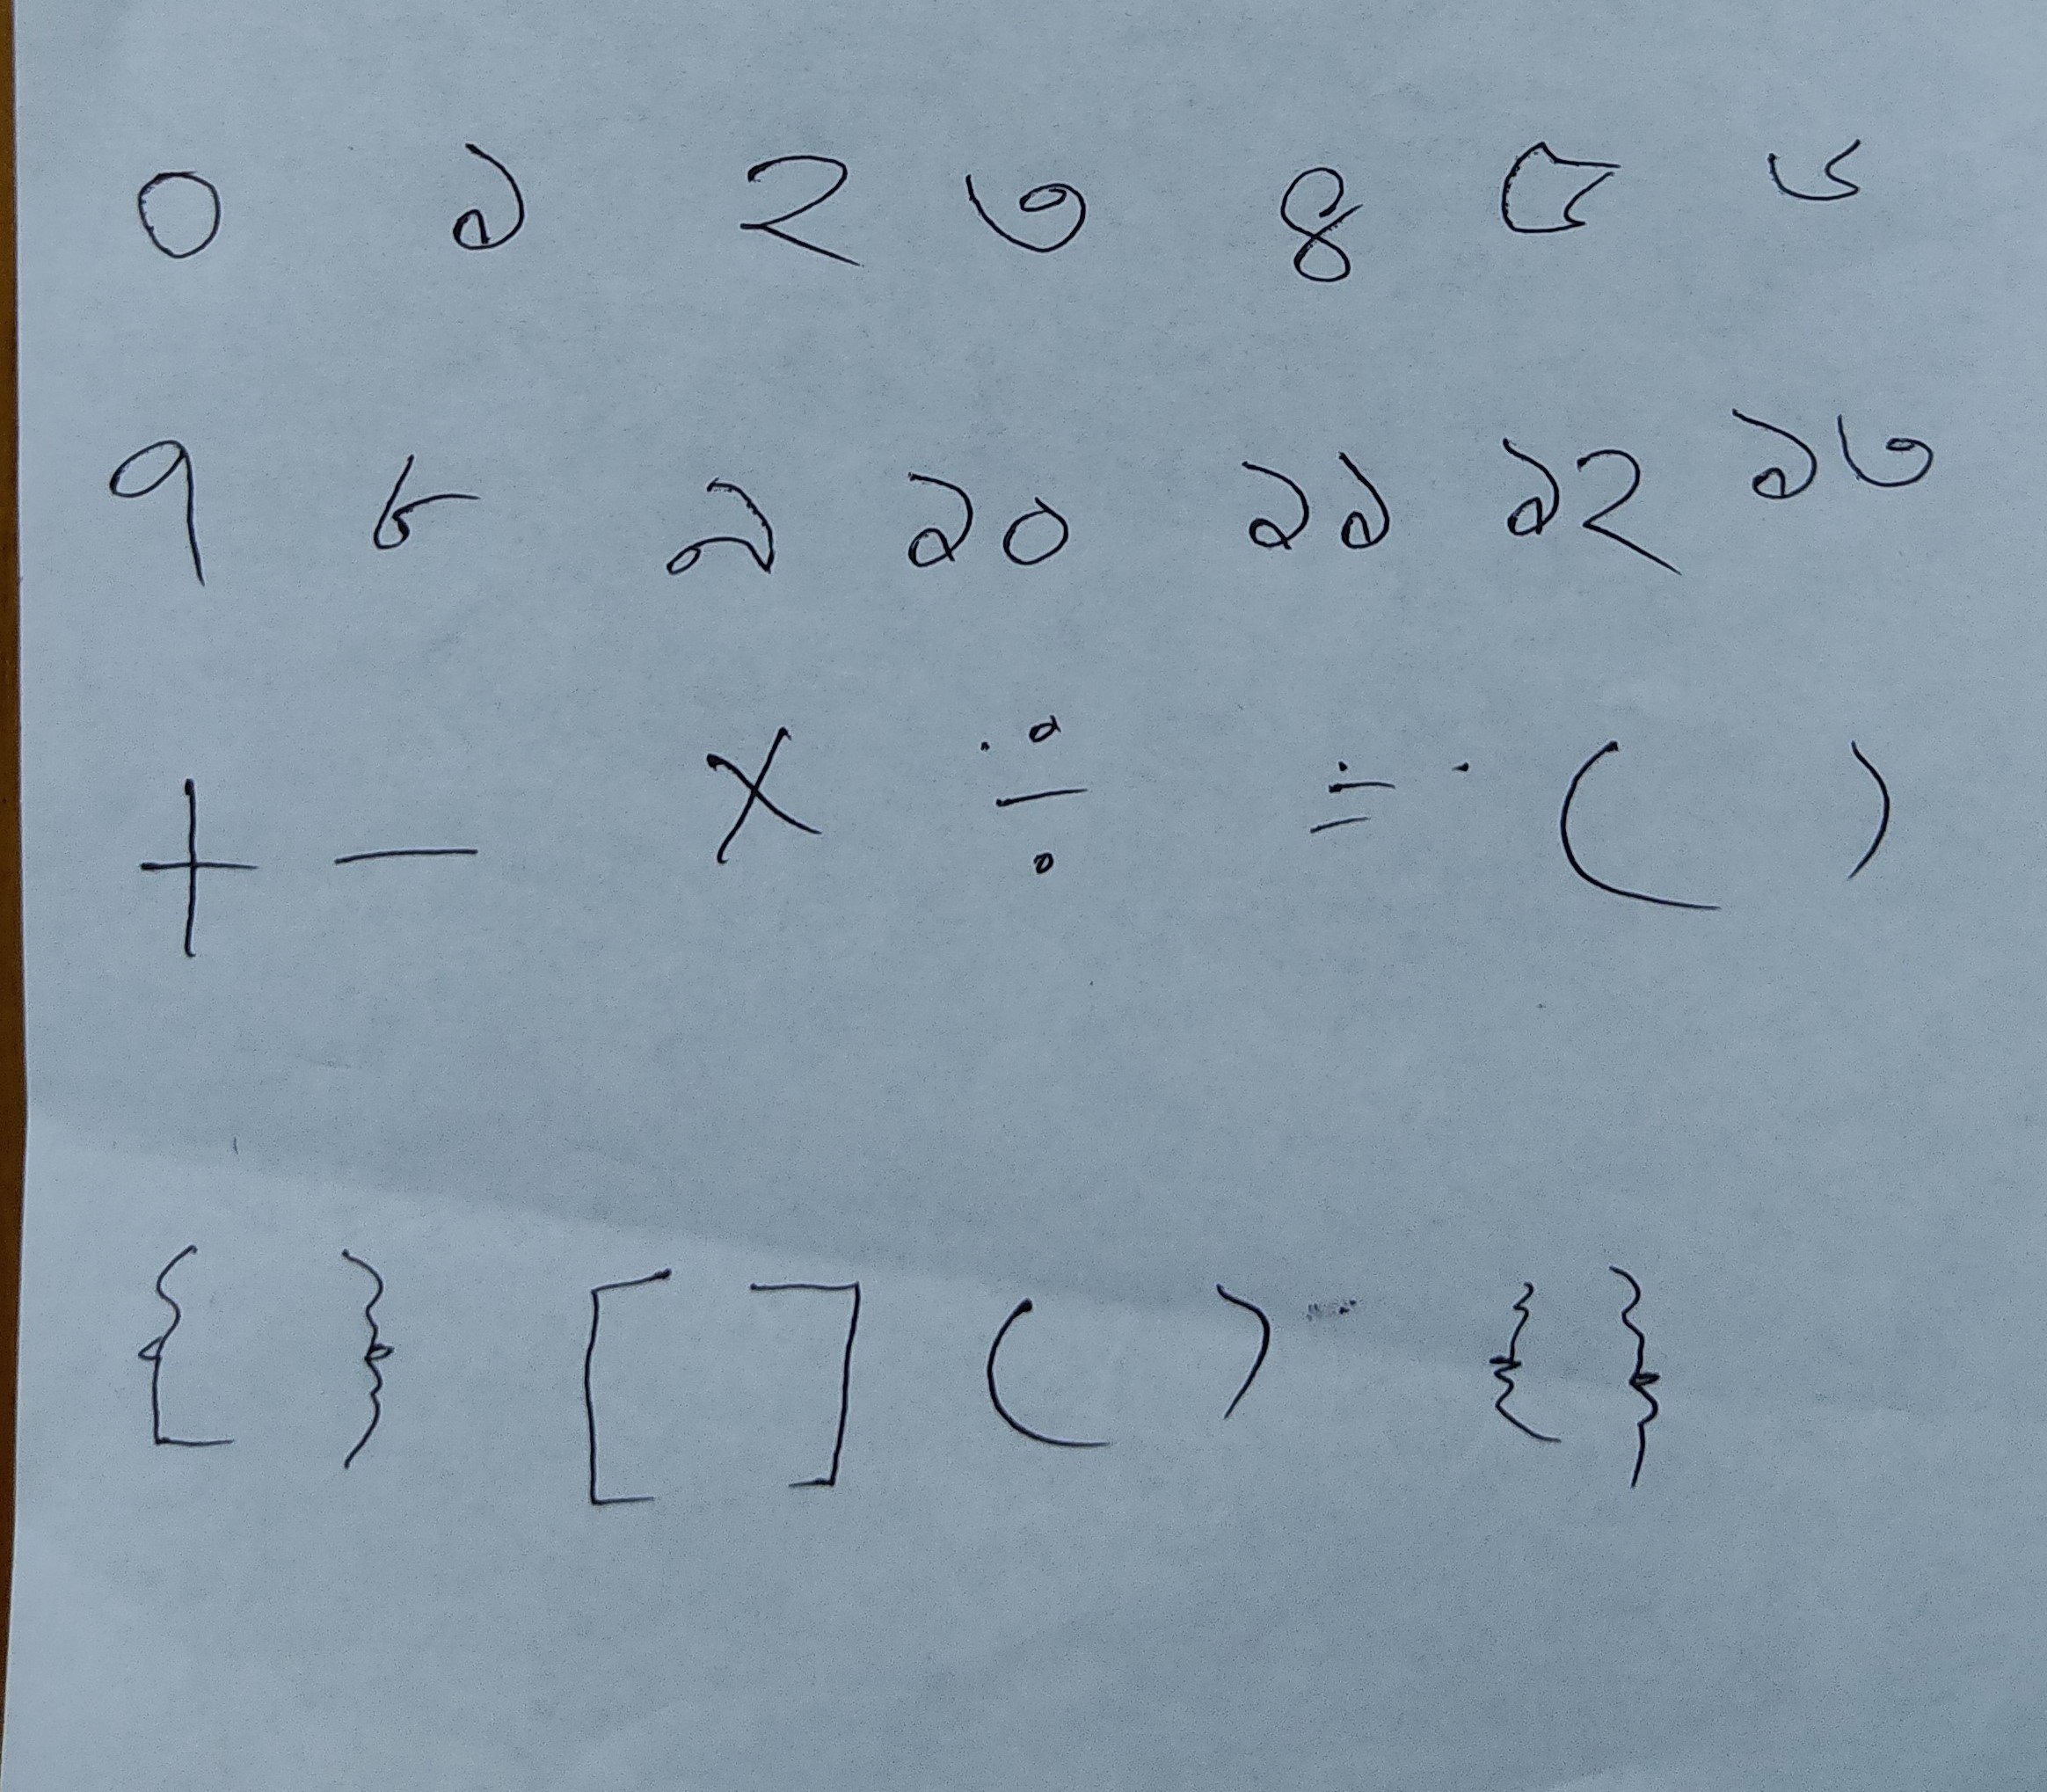 ০ ১ ২ ৩ ৪ ৫ ৬
৭ ৮ ৯ ১০ ১১ ১২ ১৩
+ − × ÷ = ( )
{ } [ ] ( ) { }